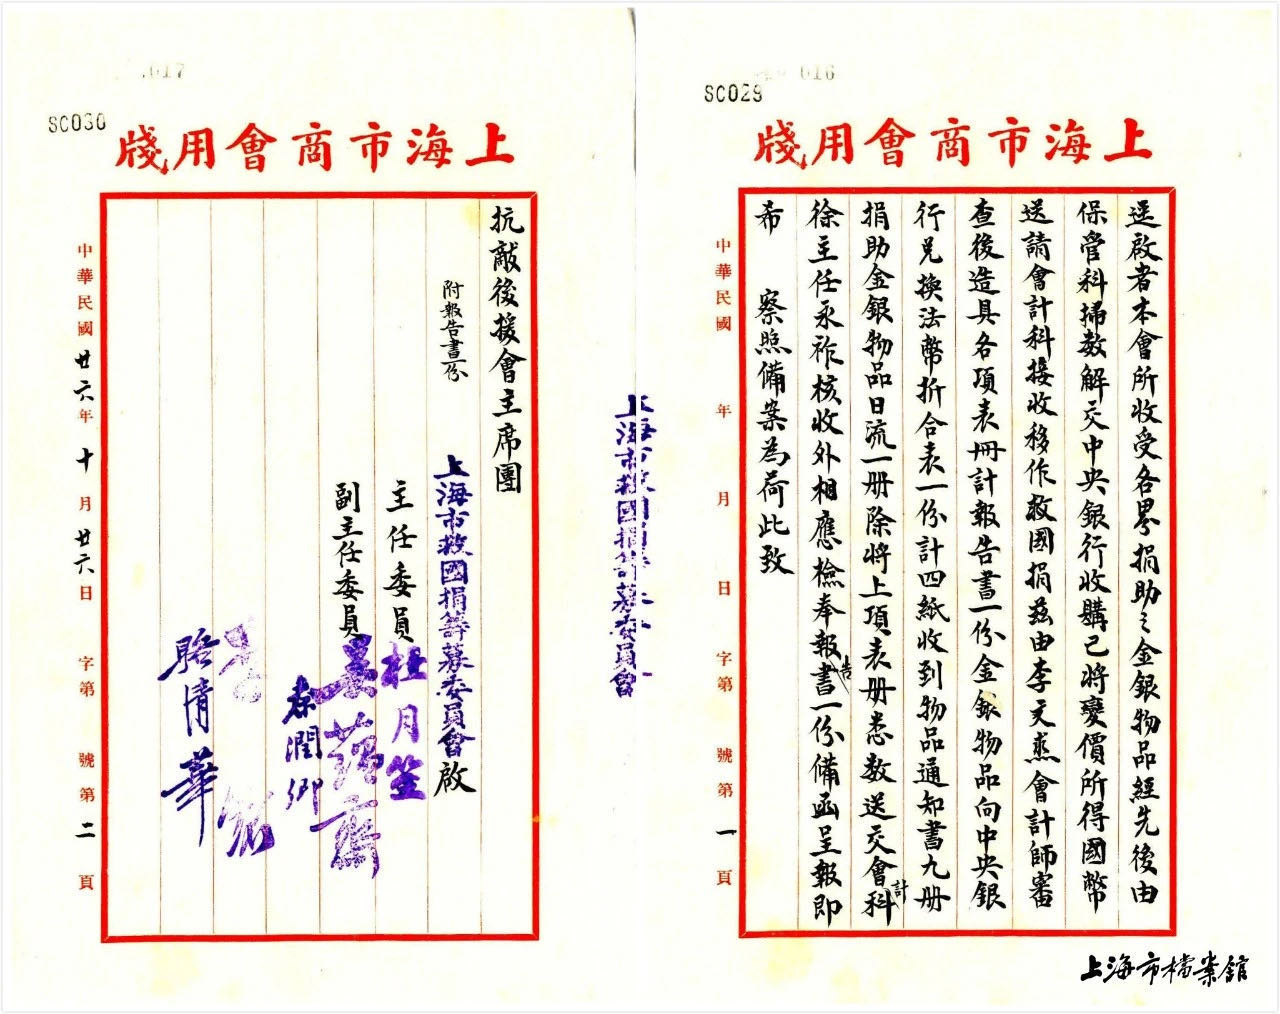 SC029
016
上海市商會用牋
逕啟者本會所收受各界捐助之金銀物品經先後由
保管科掃數解交中央銀行收購已將變價所得國幣
送請會計科接收移作救國捐茲由李文杰會計師審
查後造具各項表冊計報告書一份金銀物品向中央銀
行兌換法幣折合表一份計四紙收到物品通知書九册
捐助金銀物品日流一册除將上項表册悉數送交會計科
徐主任永祚核收外相應檢奉報告書一份備函呈報即
希 察照備案為荷此致
中華民國 年 月 日 字第 號第一頁
上海市救國捐籌募委員會
SC030
017
上海市商會用牋
抗敵後援會主席團
附報告書一份
上海市救國捐籌募委員會啟
主任委員 杜月笙
副主任委員 吳蘊齋
秦潤卿
駱清華
中華民國廿六年十月廿六日 字第 號第二頁
上海市檔案館